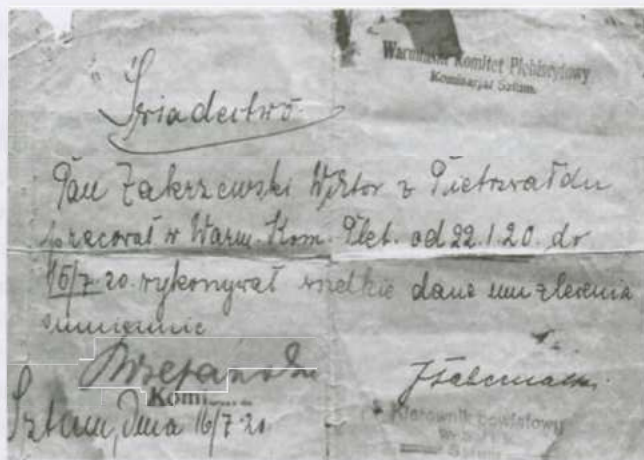 Warmiński Komitet Plebiscytowy
Komisarjat Sztum.
Świadectwo
Pan Zakrzewski Wiktor z Pietrzwałdu
pracował w Warm. Kom. Pleb. od 22.1.20. do
16/7 20. wykonywał wszelkie dane mu zlecenia
sumiennie
Sztum, dnia 16/7 20
Kierownik powiatowy